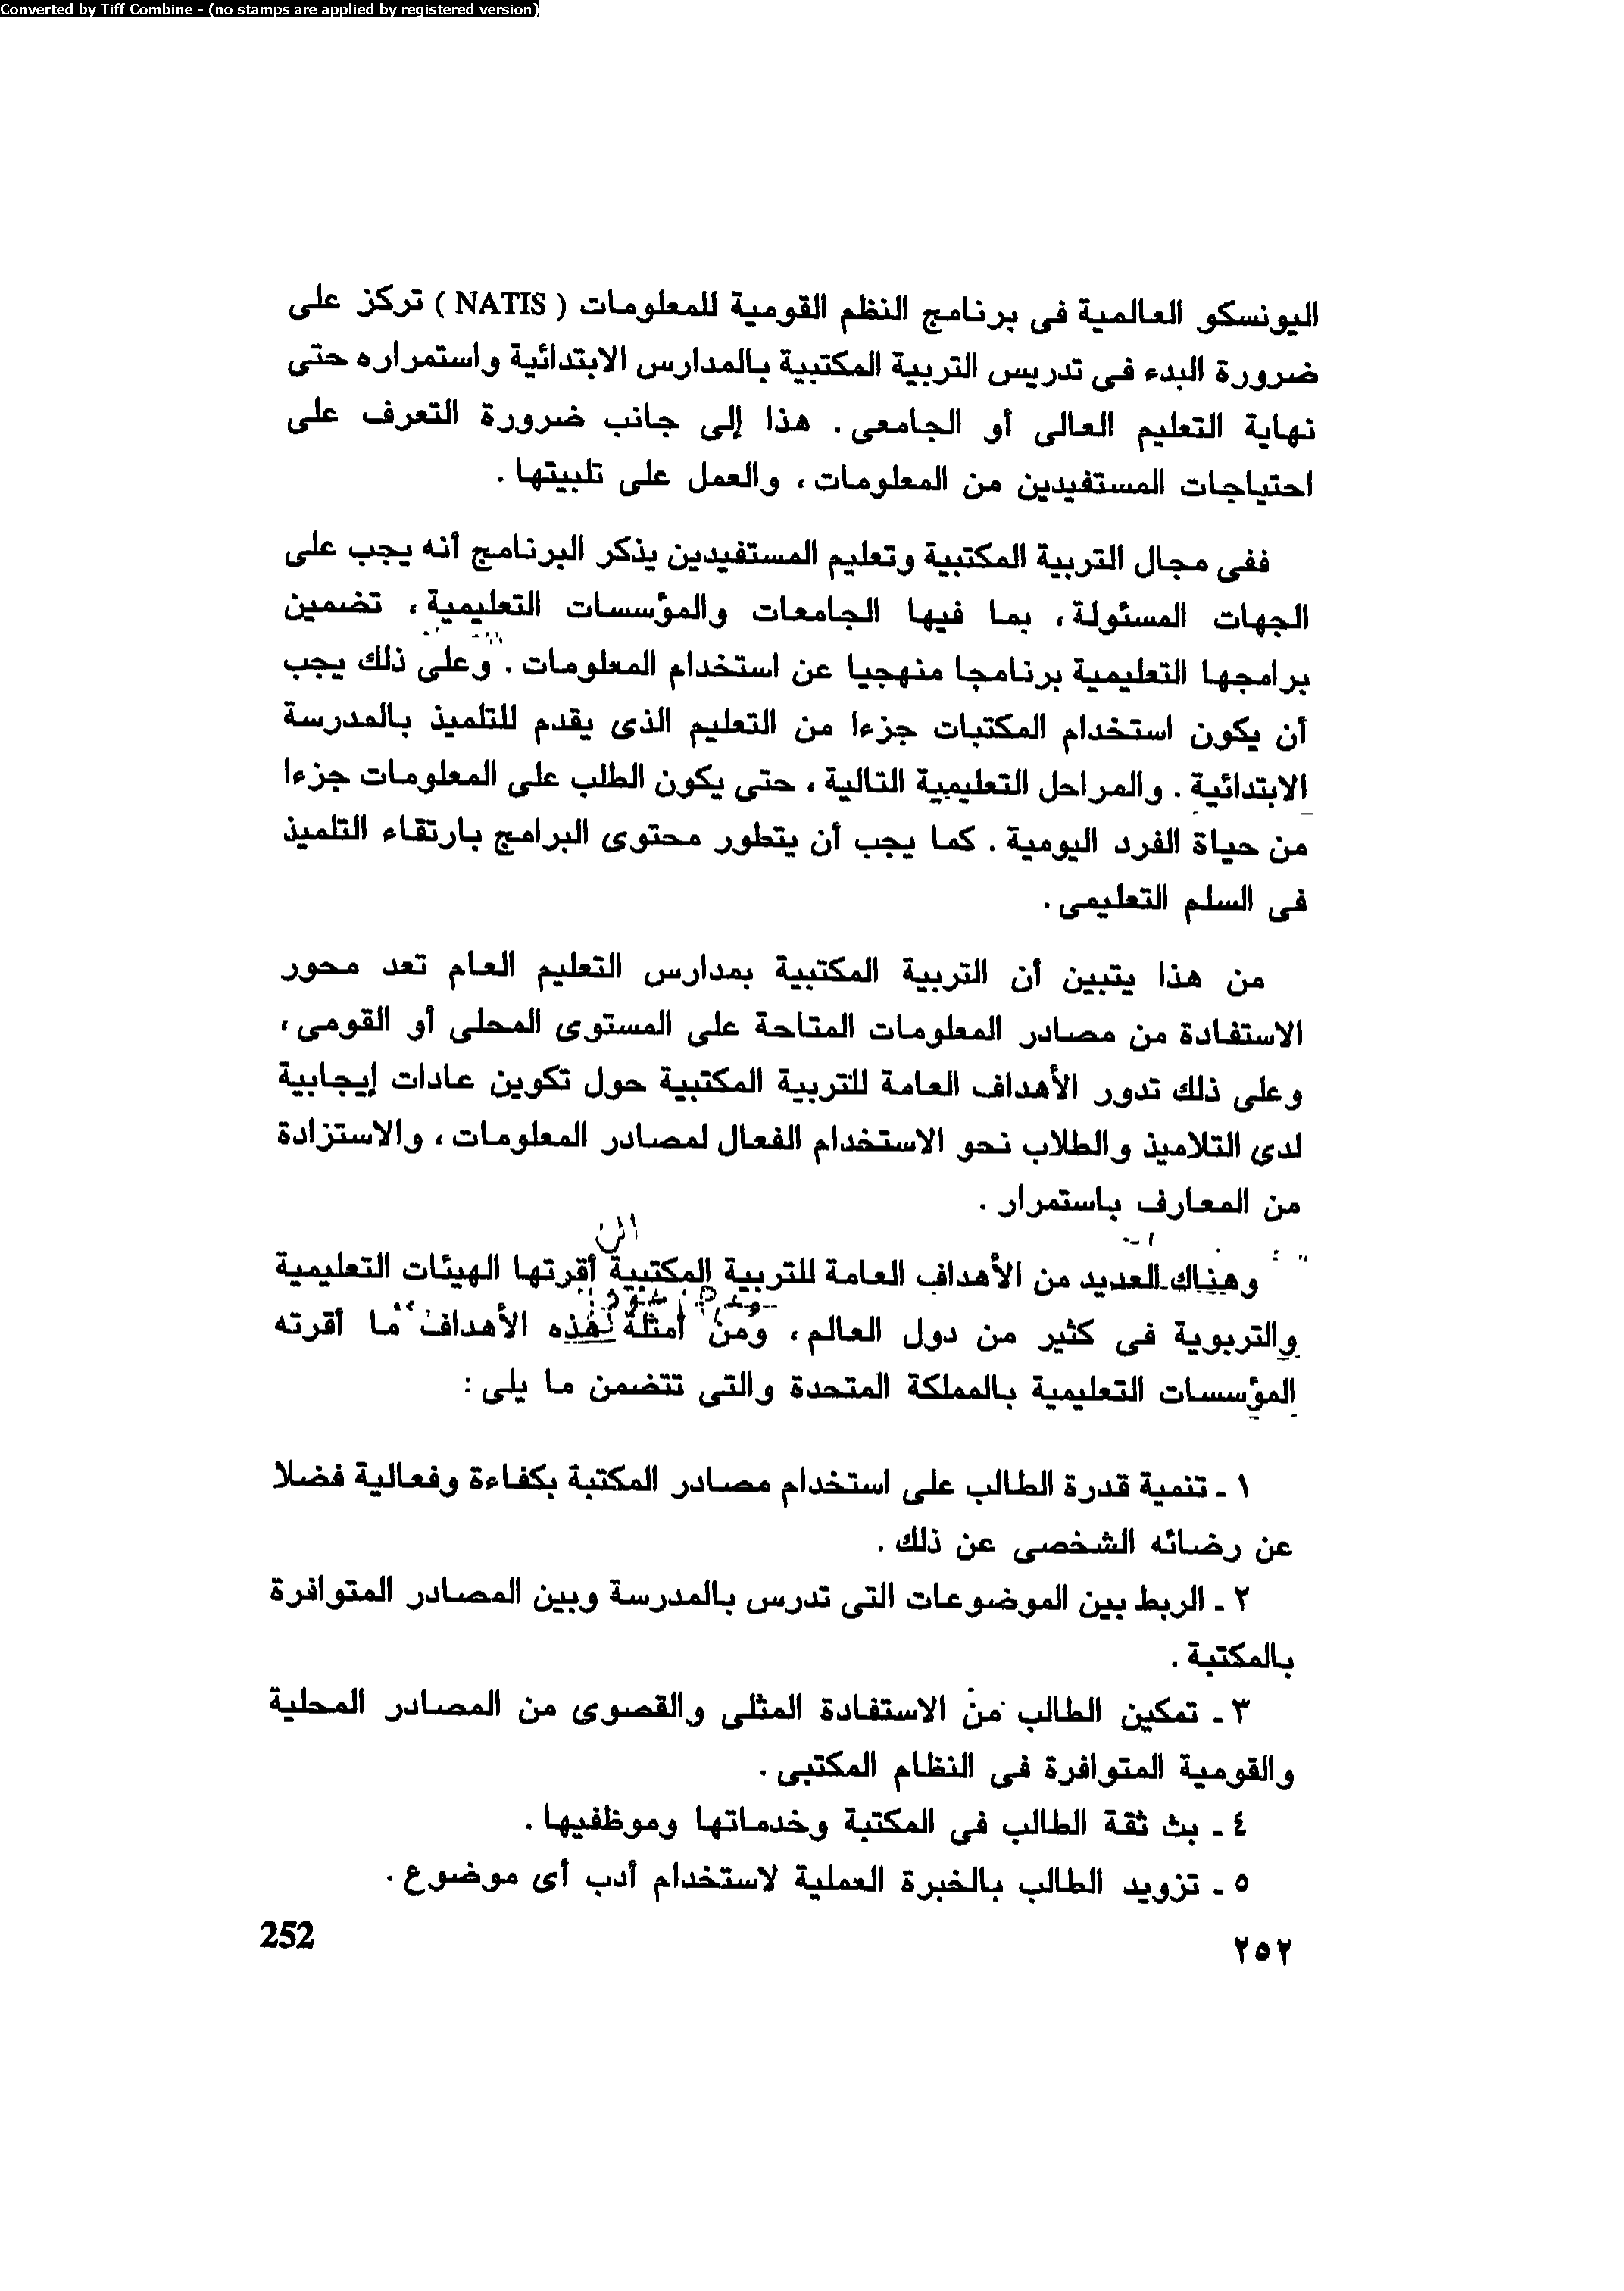 Converted by Tiff Combine - (no stamps are applied by registered version)
اليونسكو العالمية فى برنامج النظم القومية للمعلومات ( NATIS ) تركز على
ضرورة البدء فى تدريس التربية المكتبية بالمدارس الابتدائية واستمراره حتى
نهاية التعليم العالى أو الجامعى . هذا إلى جانب ضرورة التعرف على
احتياجات المستفيدين من المعلومات ، والعمل على تلبيتها .
ففى مجال التربية المكتبية وتعليم المستفيدين يذكر البرنامج أنه يجب على
الجهات المسئولة ، بما فيها الجامعات والمؤسسات التعليمية ، تضمين
برامجها التعليمية برنامجا منهجيا عن استخدام المعلومات . وعلى ذلك يجب
أن يكون استخدام المكتبات جزءا من التعليم الذى يقدم للتلميذ بالمدرسة
الابتدائية . والمراحل التعليمية التالية ، حتى يكون الطلب على المعلومات جزءا
من حياة الفرد اليومية . كما يجب أن يتطور محتوى البرامج بارتقاء التلميذ
فى السلم التعليمى .
من هذا يتبين أن التربية المكتبية بمدارس التعليم العام تعد محور
الاستفادة من مصادر المعلومات المتاحة على المستوى المحلى أو القومى ،
وعلى ذلك تدور الأهداف العامة للتربية المكتبية حول تكوين عادات إيجابية
لدى التلاميذ والطلاب نحو الاستخدام الفعال لمصادر المعلومات ، والاستزادة
من المعارف باستمرار .
وهناك العديد من الأهداف العامة للتربية المكتبية أقرتها الهيئات التعليمية
والتربوية فى كثير من دول العالم ، ومن أمثلة هذه الأهداف ما أقرته
المؤسسات التعليمية بالمملكة المتحدة والتى تتضمن ما يلى :
١ ـ تنمية قدرة الطالب على استخدام مصادر المكتبة بكفاءة وفعالية فضلا
عن رضائه الشخصى عن ذلك .
٢ ـ الربط بين الموضوعات التى تدرس بالمدرسة وبين المصادر المتوافرة
بالمكتبة .
٣ ـ تمكين الطالب من الاستفادة المثلى والقصوى من المصادر المحلية
والقومية المتوافرة فى النظام المكتبى .
٤ ـ بث ثقة الطالب فى المكتبة وخدماتها وموظفيها .
٥ ـ تزويد الطالب بالخبرة العملية لاستخدام أدب أى موضوع .
٢٥٢
252